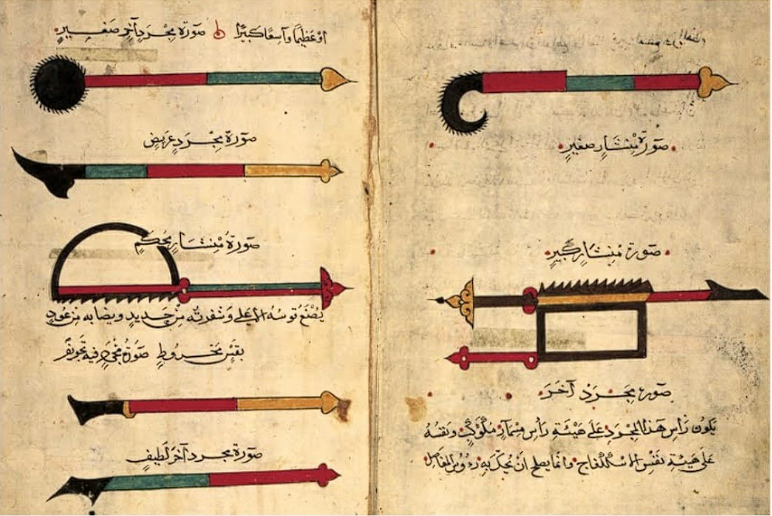 صورة منشار صغير
صورة منشار كبير
صورة مجرد آخر
يكون رأس هذا المجرد على هيئة رأس مسمار مكوكب ونقشه
على هيئة نقش وانما يصلح ان يحك به رءوس المفاصل
او عظيما واسعا كبيرا صورة مجرد آخر صغير
صورة مجرد عريض
صورة منشار محكم
يصنع قوسه الاعلى وشفرته من حديد ونصابه من عود
بقس مخروط صورة مجرد فيه تجويف
صورة مجرد آخر لطيف